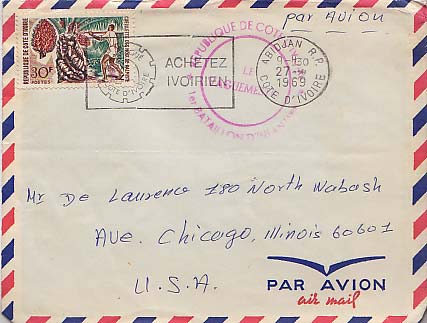 par AVION
REPUBLIQUE DE COTE D'IVOIRE
30F
POSTES
ACHETEZ
IVOIRIEN
COTE D'IVOIRE
REPUBLIQUE DE COTE
LE
1er BATAILLON D'INFANTERIE
ABIDJAN R.P.
27
1969
COTE D'IVOIRE
Mr De Laurence 180 North Wabash
Ave. Chicago, Illinois 60601
U.S.A.
PAR AVION
air mail